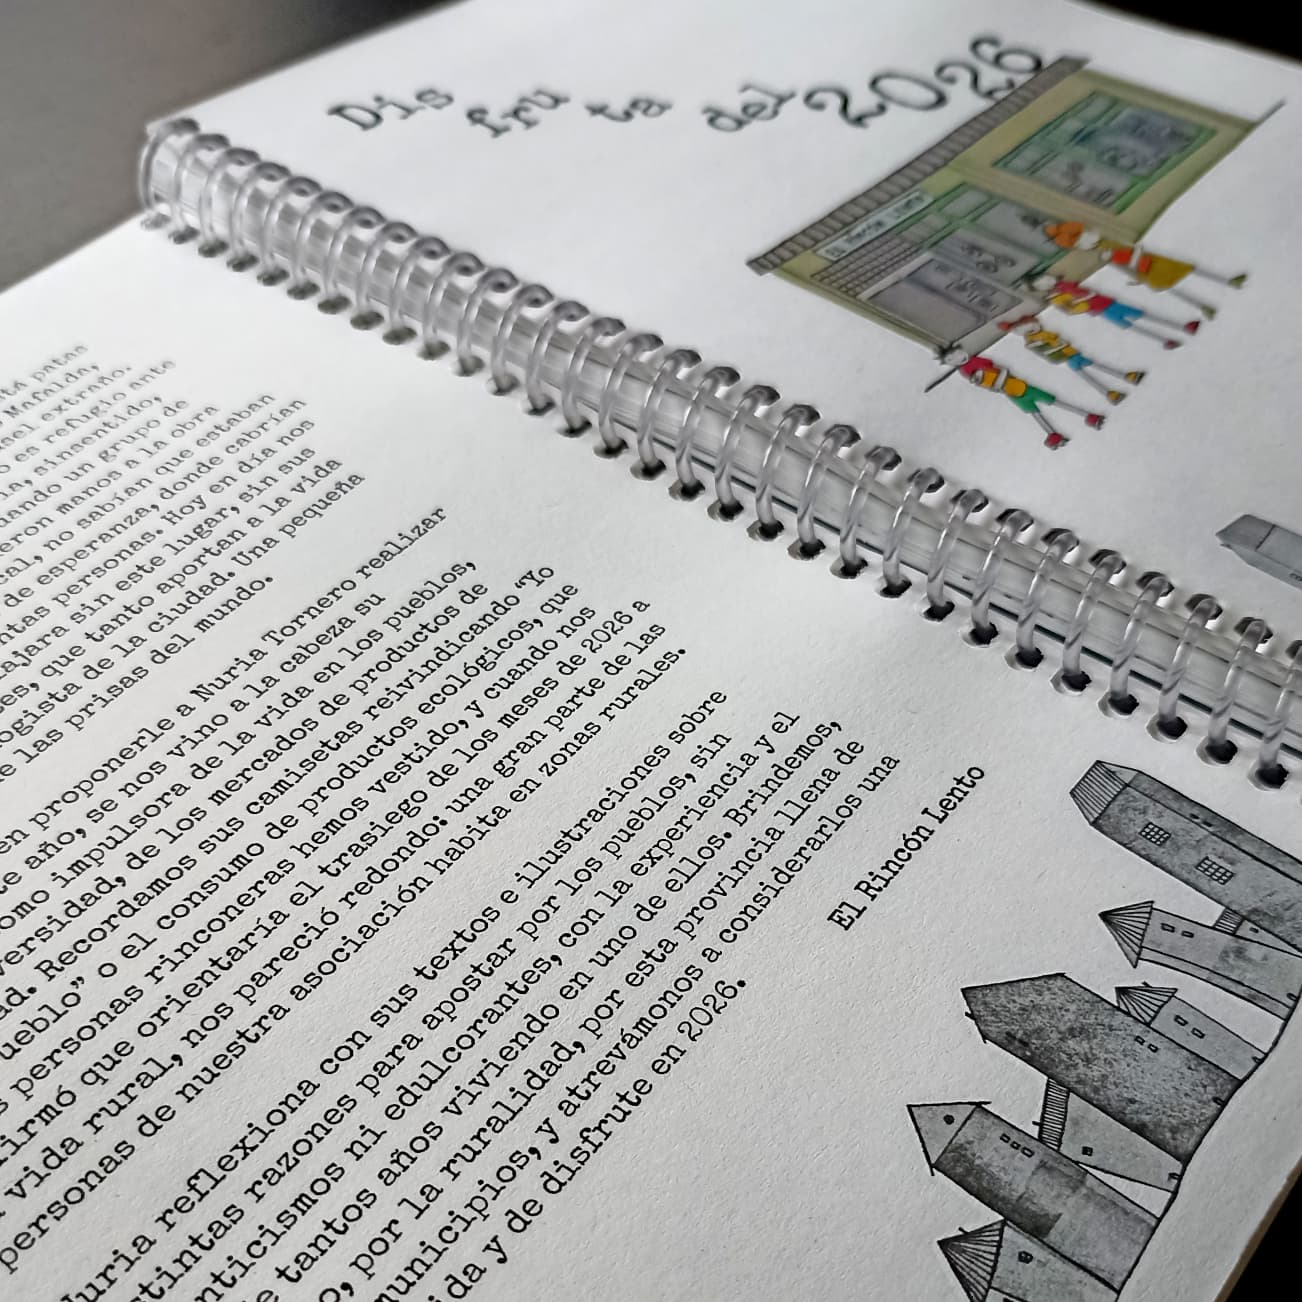 Dis
fru
ta
del
2026
El Rincón Lento
patas
Mafalda,
extraño.
es refugio ante
sinsentido,
un grupo de
manos a la obra
no sabían que estaban
de esperanza, donde cabrían
personas. Hoy en día nos
sin este lugar, sin sus
que tanto aportan a la vida
de la ciudad. Una pequeña
las prisas del mundo.
en proponerle a Nuria Tornero realizar
año, se nos vino a la cabeza su
como impulsora de la vida en los pueblos,
de los mercados de productos de
Recordamos sus camisetas reivindicando “Yo
” o el consumo de productos ecológicos, que
personas rinconeras hemos vestido, y cuando nos
que orientaría el trasiego de los meses de 2026 a
vida rural, nos pareció redondo: una gran parte de las
personas de nuestra asociación habita en zonas rurales.
reflexiona con sus textos e ilustraciones sobre
razones para apostar por los pueblos, sin
ni edulcorantes, con la experiencia y el
tantos años viviendo en uno de ellos. Brindemos,
por la ruralidad, por esta provincia llena de
municipios, y atrevámonos a considerarlos una
y de disfrute en 2026.
El Rincón Lento